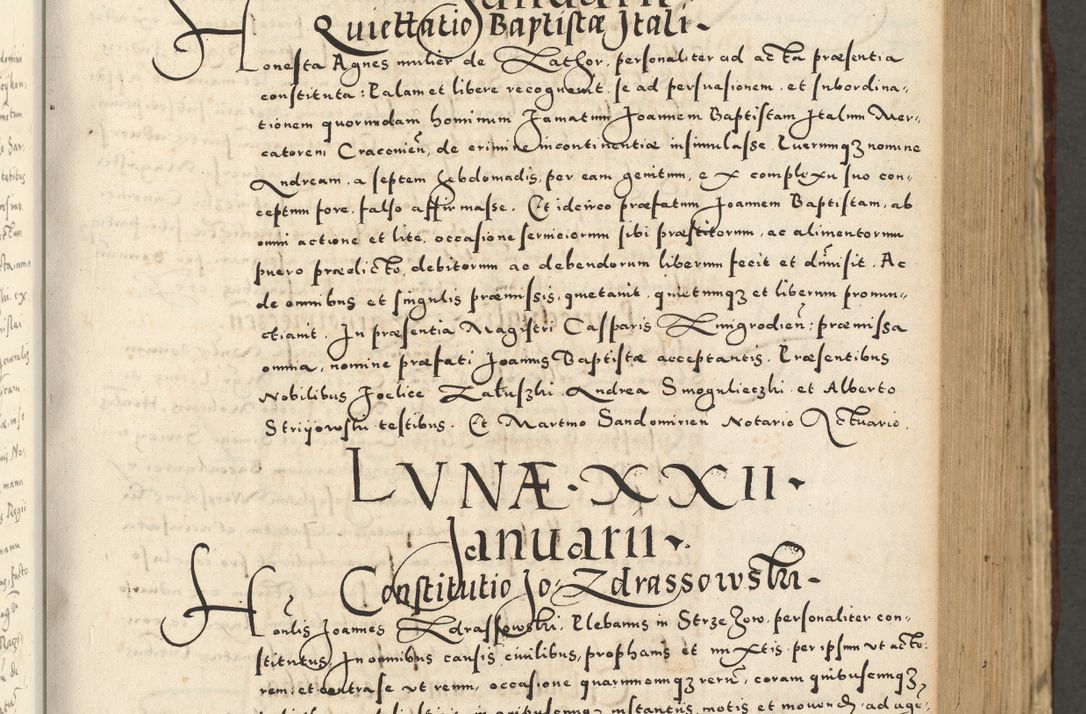 Januarii
Quiettatio Baptistæ Itali.
Honesta Agnes mulier de Zathor, personaliter ad acta præsentia
constituta: Palam et libere recognovit, se ad persuasionem, et subordina-
tionem quorundam hominum famatum Joannem Baptistam Italum Mer-
catorem Craconien, de crimine incontinentiæ insimulasse. Puerumqꝫ nomine
Andream, a septem hebdomadis, per eam genitum, ex complexu suo con-
ceptum fore, falso affirmasse. Et idcirco præfatum Joannem Baptistam, ab
omni actione et lite, occasione serviciorum sibi præstitorum, ac alimentorum
puero prædicto, debitorum ac debendorum liberum fecit et dimisit. Ac
de omnibus et singulis præmissis, quietavit, quietumqꝫ et liberum pronun-
ctiavit. In præsentia Magistri Casparis Zmigrodien: præmissa
omnia, nomine præfati Joannis Baptistæ acceptantis. Præsentibus
Nobilibus Foelice Zaluszki Andrea Smogulieczki et Alberto
Striyowski testibus. Et Martino Sandomirien Notario Actuario.
LVNÆ. XXII.
Januarii.
Constitutio Jo: Zdrassowski.
Honlis Joannes Zdrassowski, Plebanus in Strzezow, personaliter con-
stitutus, In omnibus causis civilibus, prophanis et mixtis, per ipsum ut acto-
rem, et contra se ut reum, occasione quarumcumqꝫ rerum, coram quibuscumqꝫ
instantiis, motis et movend, ad age-